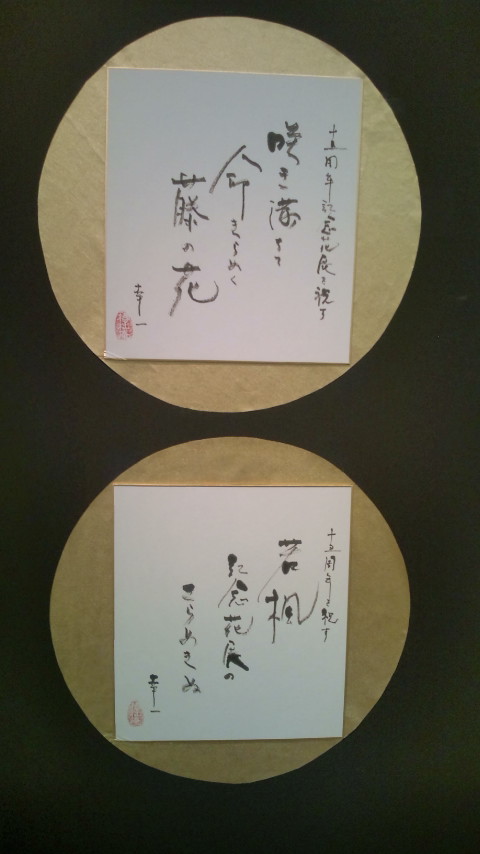 十五周年記念花展を祝す
咲き満ちて
命きらめく
藤の花
幸一
十五周年を祝す
若楓
記念花展の
きらめきぬ
幸一